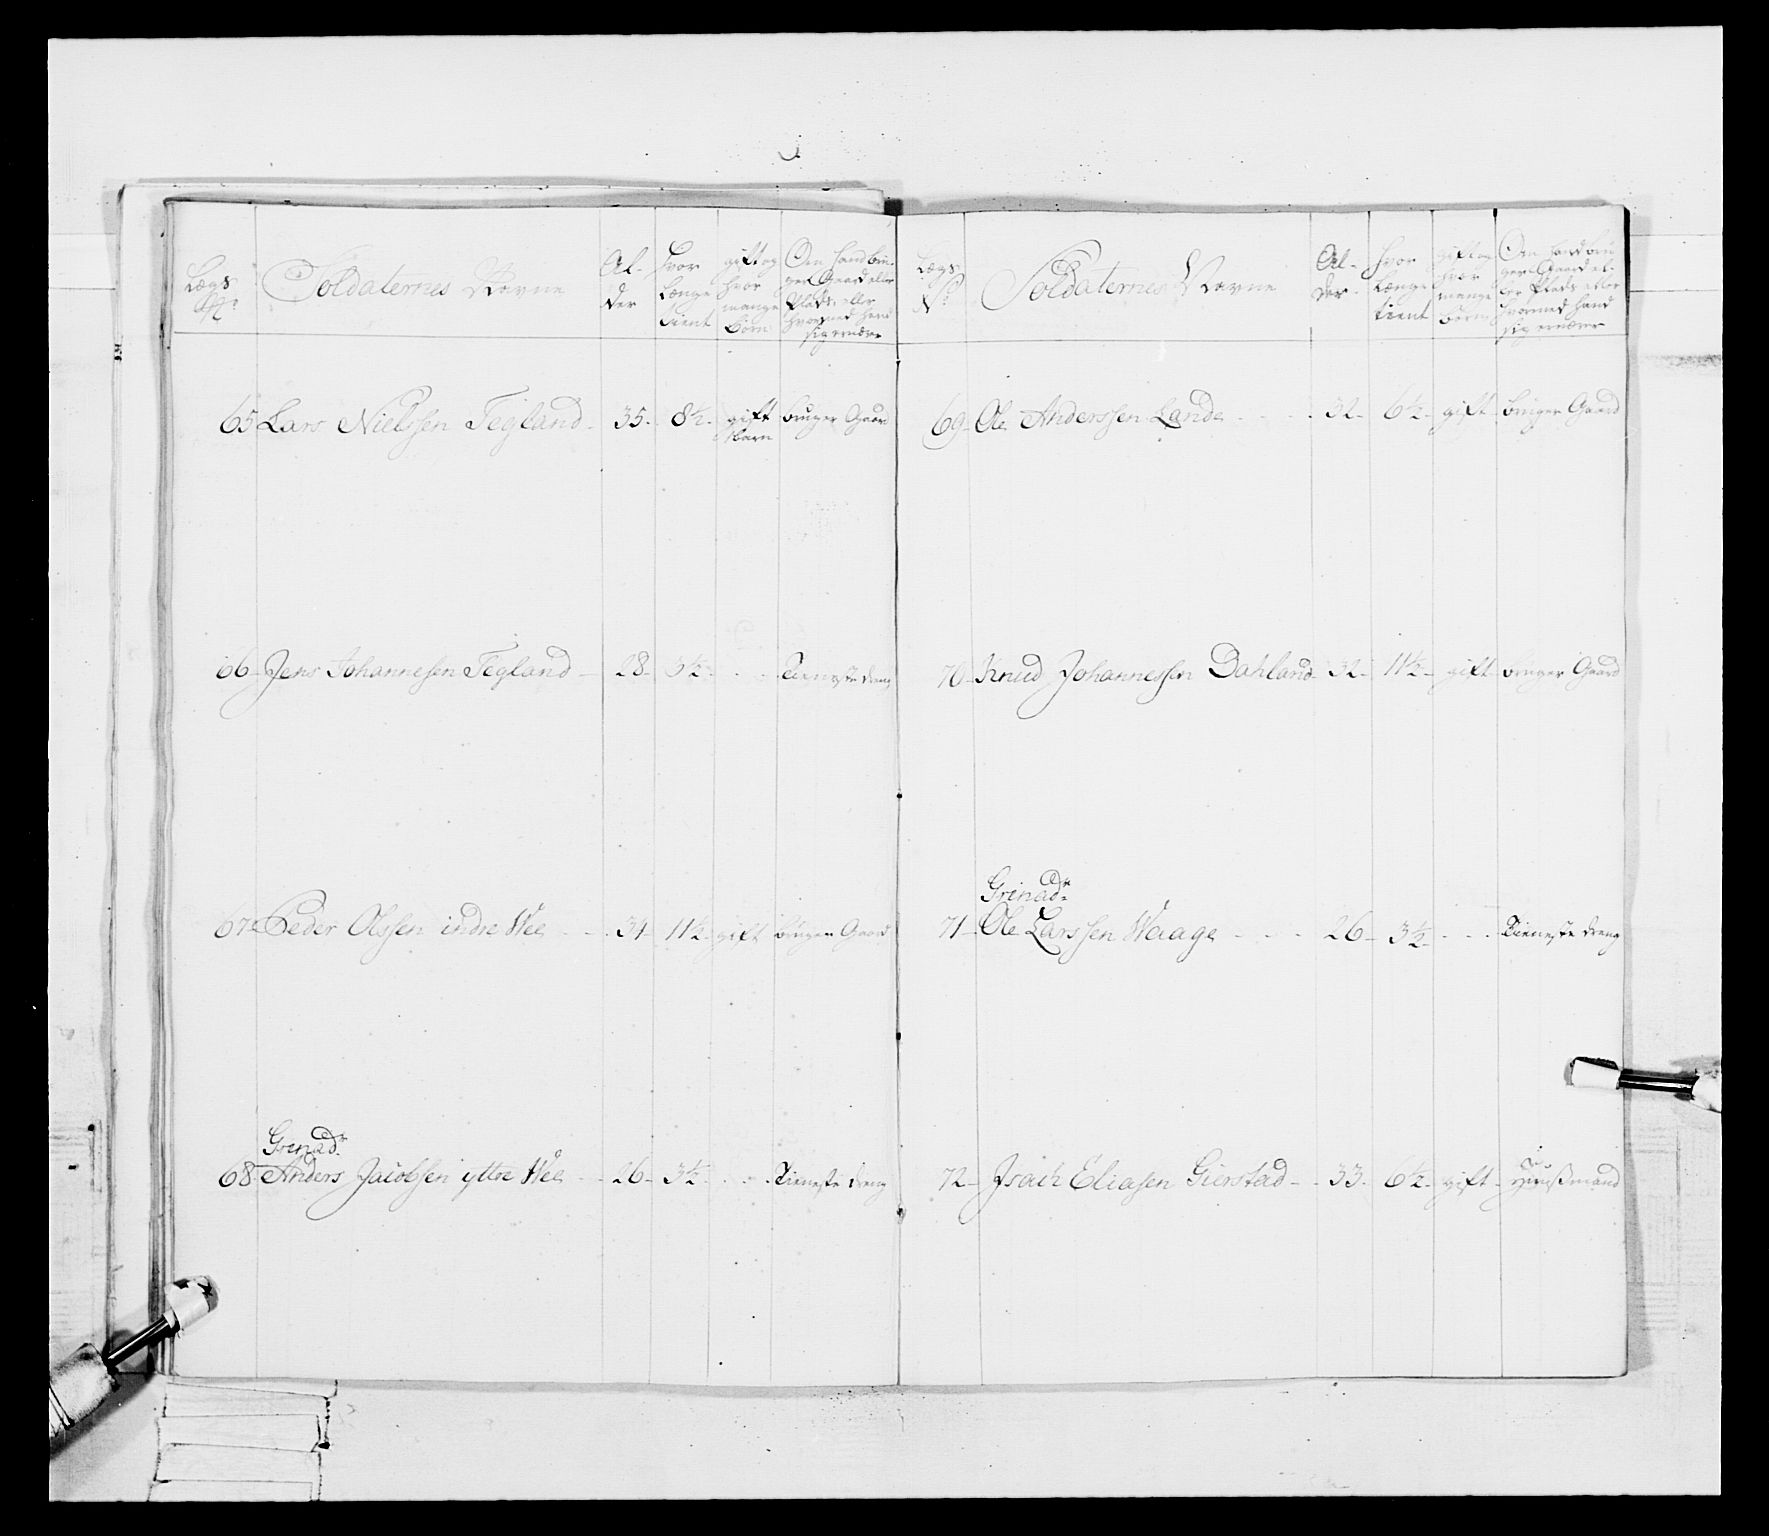 Lægs No
Soldaternes Navne
Al-
der
hvor
længe
tient
gift og
hvor
mange
börn
Om hand bru-
ger Gaard eller
Plads eller
hvormed hand
sig ernærer
65 Lars Nielssen Tegland - 35 - 8½ - gift bruger Gaard
1 barn
66 - Jens Johannesen Tegland - 28 - 3½ - Tieneste dreng
67 - Peder Olssen indre Wee - 34 - 11½ - gift bruger Gaard
Grenadr
68 - Anders Jacobsen ÿttre Wee - 26 - 3½ - Tieneste dreng
Lægs
No
Soldaternes Navne
Al-
der
hvor
længe
tient
gift og
hvor
mange
börn
Om hand bru-
ger Gaard el-
ler Plads eller
hvormed hand
sig ernærer
69 - Ole Anderssen Lande - 32 - 6½ - gift bruger Gaard
70 - Knud Johannessen Dahland - 32 - 11½ - gift bruger Gaard
Grenadr
71 - Ole Larssen Waage - 26 - 3½ - Tieneste dreng
72 - Isach Eliasen Gierstad - 33 - 6½ - gift - Huusmand